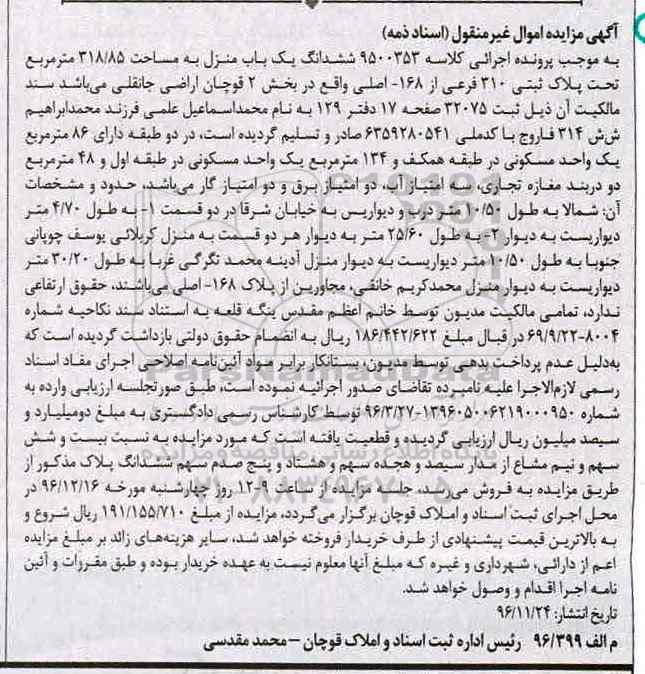 آگهی مزایده اموال غیرمنقول (اسناد ذمه)
به موجب پرونده اجرائی کلاسه ۹۵۰۰۳۵۳ ششدانگ یک باب منزل به مساحت ۳۱۸/۸۵ مترمربع
تحت پلاک ثبتی ۳۱۰ فرعی از ۱۶۸- اصلی واقع در بخش ۲ قوچان اراضی جانقلی می‌باشد سند
مالکیت آن ذیل ثبت ۳۲۰۷۵ صفحه ۱۷ دفتر ۱۲۹ به نام محمداسماعیل علمی فرزند محمدابراهیم
ش‌ش ۳۱۴ فاروج با کدملی ۶۳۵۹۲۸۰۵۴۱ صادر و تسلیم گردیده است، در دو طبقه دارای ۸۶ مترمربع
یک واحد مسکونی در طبقه همکف و ۱۳۴ مترمربع یک واحد مسکونی در طبقه اول و ۴۸ مترمربع
دو دربند مغازه تجاری، سه امتیاز آب، دو امتیاز برق و دو امتیاز گاز می‌باشد، حدود و مشخصات
آن: شمالا به طول ۱۰/۵۰ متر درب و دیواریس به خیابان شرقا در دو قسمت ۱- به طول ۴/۷۰ متر
دیواریست به دیوار ۲- به طول ۲۵/۶۰ متر به دیوار هر دو قسمت به منزل کربلائی یوسف چوپانی
جنوبا به طول ۱۰/۵۰ متر دیواریست به دیوار منزل آدینه محمد تگرگی غربا به طول ۳۰/۲۰ متر
دیواریست به دیوار منزل محمدکریم خانقی، مجاورین از پلاک ۱۶۸- اصلی می‌باشند، حقوق ارتفاعی
ندارد، تمامی مالکیت مدیون توسط خانم اعظم مقدس ینگه قلعه به استناد سند نکاحیه شماره
۸۰۰۴-۶۹/۹/۲۲ در قبال مبلغ ۱۸۶/۴۴۲/۶۲۲ ریال به انضمام حقوق دولتی بازداشت گردیده است که
به‌دلیل عدم پرداخت بدهی توسط مدیون، بستانکار برابر مواد آئین‌نامه اصلاحی اجرای مفاد اسناد
رسمی لازم‌الاجرا علیه نامبرده تقاضای صدور اجرائیه نموده است، طبق صورتجلسه ارزیابی وارده به
شماره ۱۳۹۶۰۵۰۰۶۲۱۹۰۰۰۹۵۰-۹۶/۳/۲۷ توسط کارشناس رسمی دادگستری به مبلغ دومیلیارد و
سیصد میلیون ریال ارزیابی گردیده و قطعیت یافته است که مورد مزایده به نسبت بیست و شش
سهم و نیم مشاع از مدار سیصد و هجده سهم و هشتاد و پنج صدم سهم ششدانگ پلاک مذکور از
طریق مزایده به فروش می‌رسد، جلسه مزایده از ساعت ۹-۱۲ روز چهارشنبه مورخه ۹۶/۱۲/۱۶ در
محل اجرای ثبت اسناد و املاک قوچان برگزار می‌گردد، مزایده از مبلغ ۱۹۱/۱۵۵/۷۱۰ ریال شروع و
به بالاترین قیمت پیشنهادی از طرف خریدار فروخته خواهد شد، سایر هزینه‌های زائد بر مبلغ مزایده
اعم از دارائی، شهرداری و غیره که مبلغ آنها معلوم نیست به عهده خریدار بوده و طبق مقررات و آئین
نامه اجرا اقدام و وصول خواهد شد.
تاریخ انتشار: ۹۶/۱۱/۲۴
م الف ۹۶/۳۹۹ رئیس اداره ثبت اسناد و املاک قوچان – محمد مقدسی